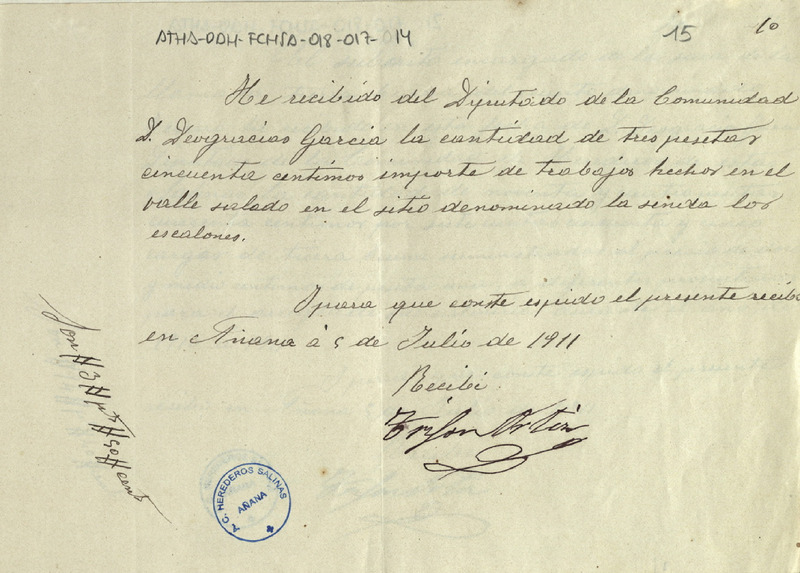 ATHA-DDH-FCHSA-018-017-014
15
10
He recibido del Diputado de la Comunidad
D. Deogracias Garcia la cantidad de tres pesetas
cincuenta centimos importe de trabajos hechos en el
valle salado en el sitio denominado la senda los
escalones.
I para que conste espido el presente recibo
en Añana á 5 de Julio de 1911
Recibí
Ortiz
Son #3# pts #50# cents
C. HEREDEROS SALINAS
AÑANA